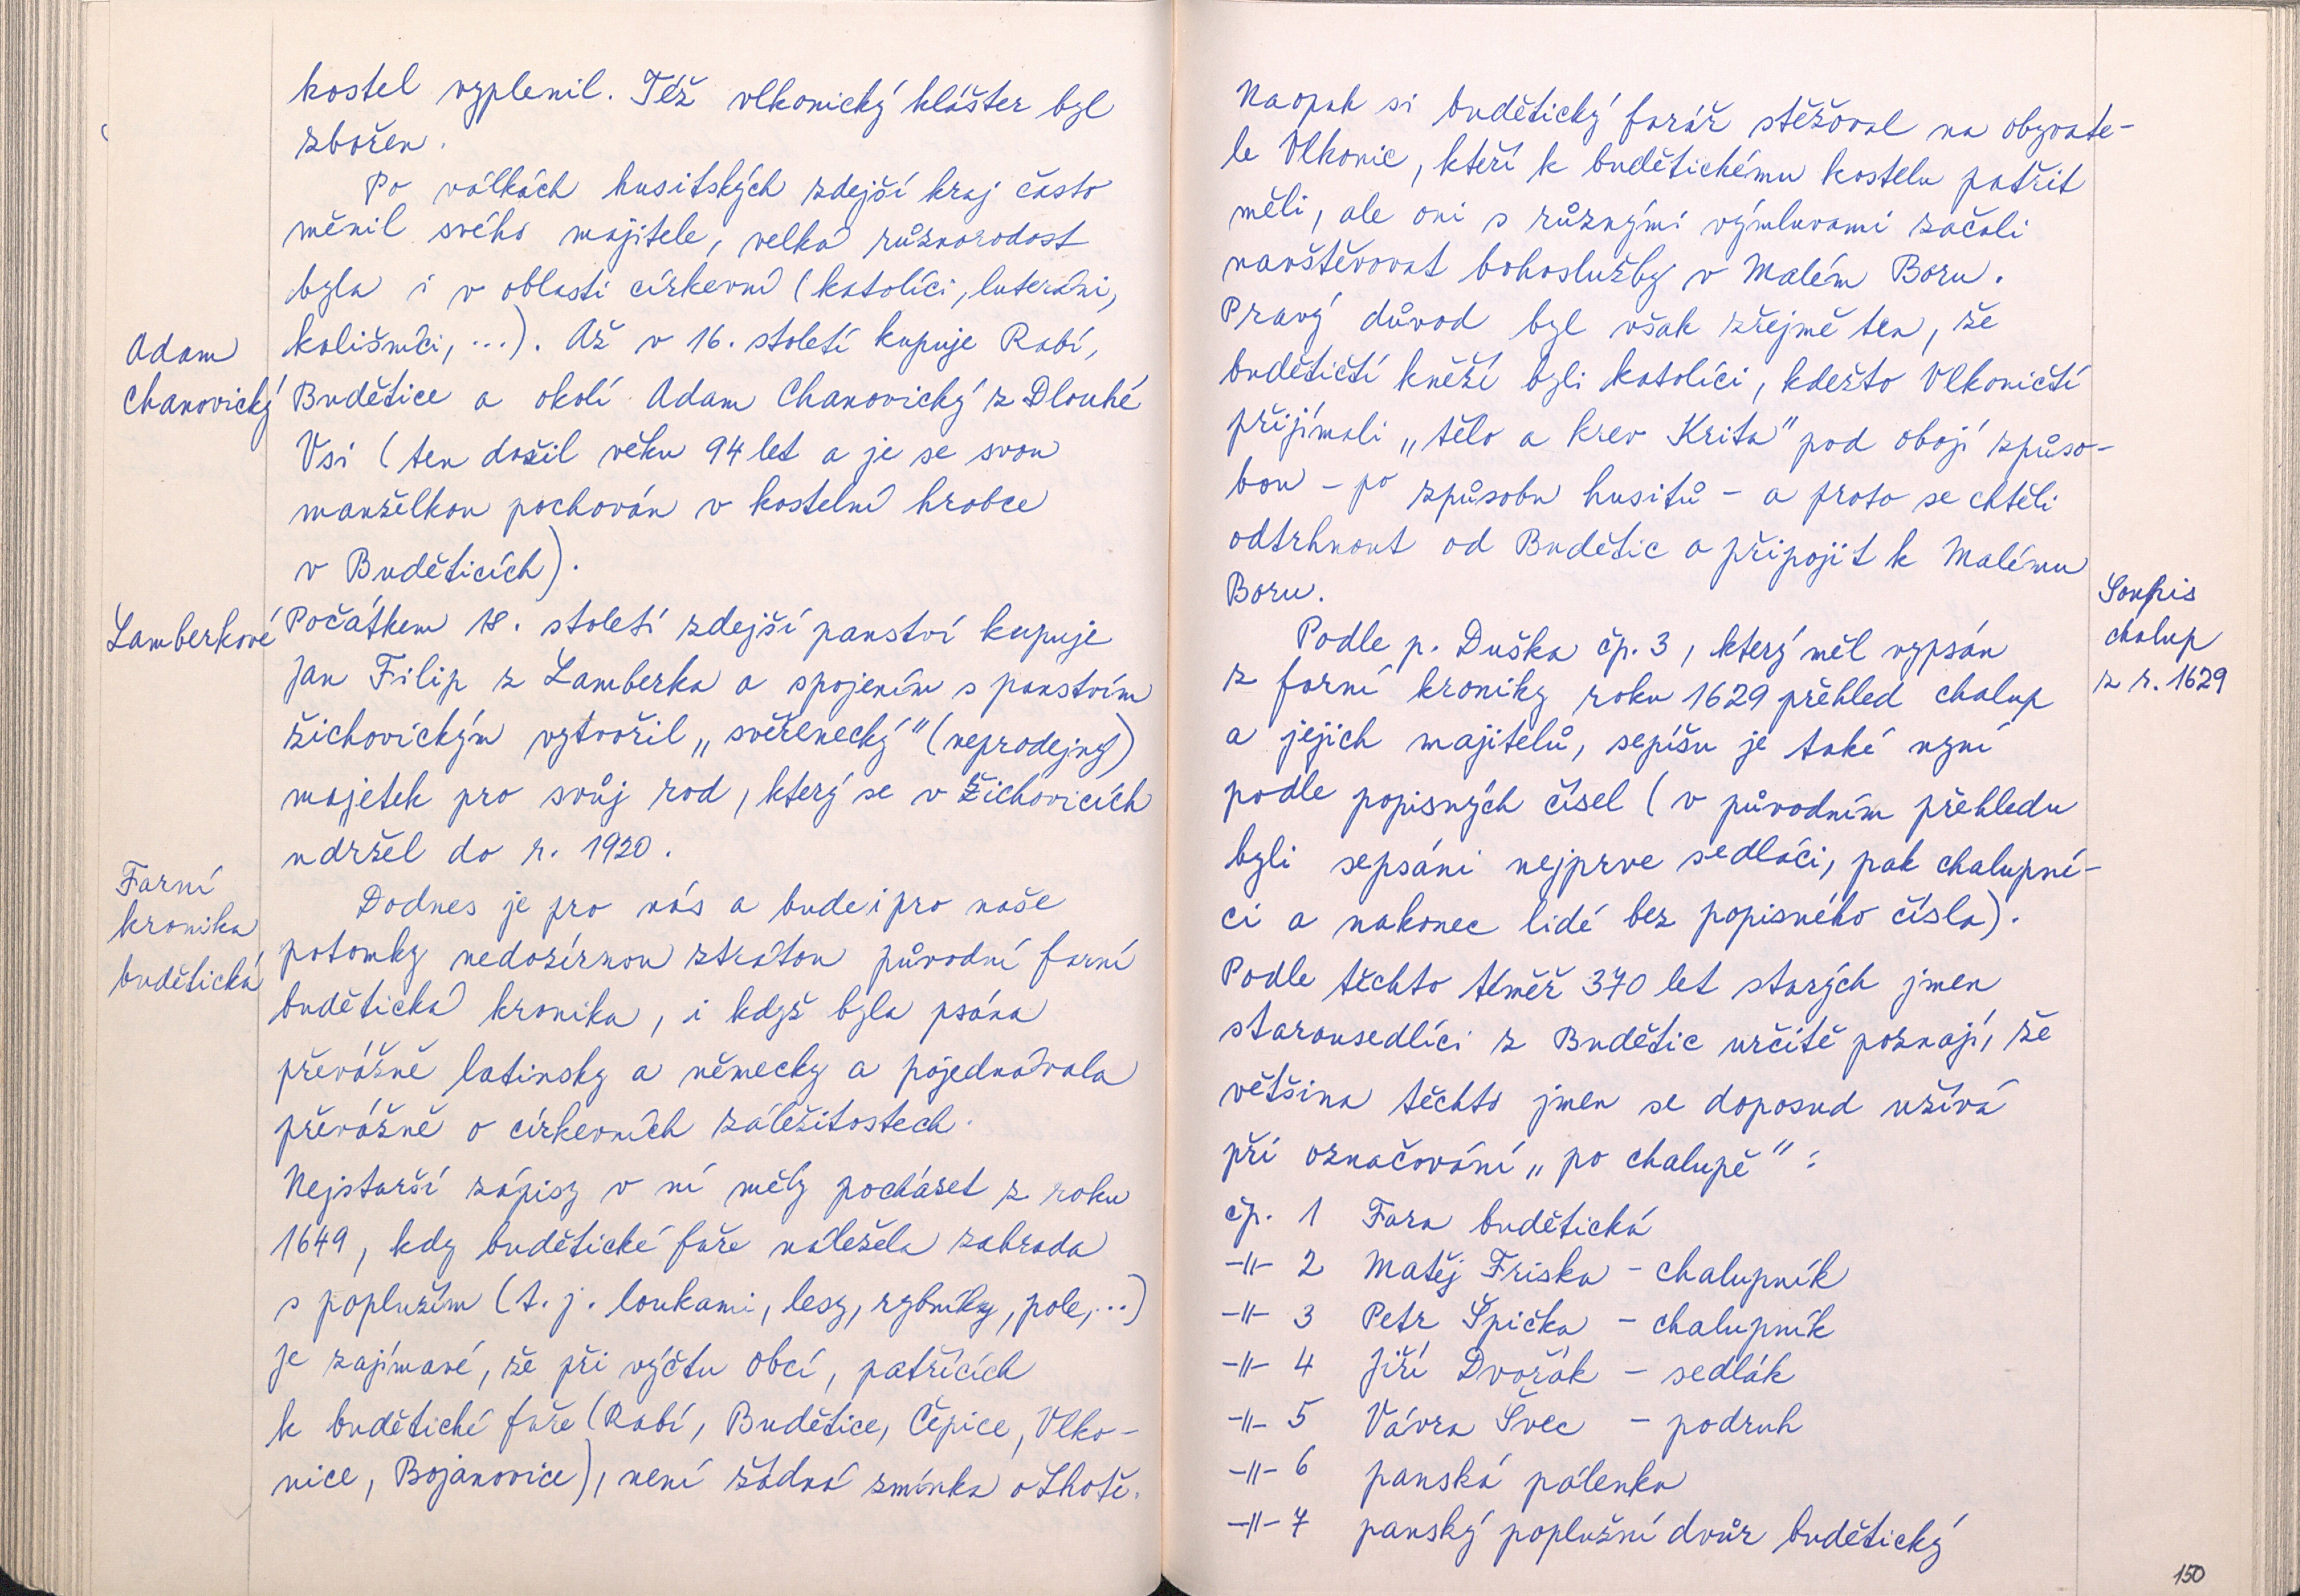 kostel vyplenil. Též vlkonický klášter byl
zbořen.
Po válkách husitských zdejší kraj často
měnil svého majitele, velká různorodost
byla i v oblasti církevní (katolíci, luteráni,
Adam
kališníci, ...). Až v 16. století kupuje Rabí,
Chanovický
Budětice a okolí Adam Chanovický z Dlouhé
Vsi (ten dožil věku 94 let a je se svou
manželkou pochován v kostelní hrobce
v Buděticích).
Lamberkové
Počátkem 18. století zdejší panství kupuje
Jan Filip z Lamberka a spojením s panstvím
žichovickým vytvořil „svěřenecký" (neprodejný)
majetek pro svůj rod, který se v Žichovicích
udržel do r. 1920.
Farní
kronika
budětická
Dodnes je pro nás a bude i pro naše
potomky nedozírnou ztrátou původní farní
budětická kronika, i když byla psána
převážně latinsky a německy a pojednávala
převážně o církevních záležitostech.
Nejstarší zápisy v ní měly pocházet z roku
1649, kdy budětické faře náležela zahrada
s poplužím (t. j. loukami, lesy, rybníky, pole,...)
Je zajímavé, že při výčtu obcí, patřících
k budětické faře (Rabí, Budětice, Čepice, Vlko-
nice, Bojanovice), není žádná zmínka o Lhotě.
Naopak si budětický farář stěžoval na obyvate-
le Vlkonic, kteří k budětickému kostelu patřit
měli, ale oni s různými výmluvami začali
navštěvovat bohoslužby v Malém Boru.
Pravý důvod byl však zřejmě ten, že
budětičtí kněží byli katolíci, kdežto Vlkoničtí
přijímali „tělo a krev Krita" pod obojí způso-
bou - po způsobu husitů - a proto se chtěli
odtrhnout od Budětic a připojit k Malému
Boru.
Soupis
chalup
z r. 1629
Podle p. Duška čp. 3, který měl vypsán
z farní kroniky roku 1629 přehled chalup
a jejich majitelů, sepíšu je také nyní
podle popisných čísel (v původním přehledu
byli sepsáni nejprve sedláci, pak chalupní-
ci a nakonec lidé bez popisného čísla).
Podle těchto téměř 370 let starých jmen
starousedlíci z Budětic určitě poznají, že
většina těchto jmen se doposud užívá
při označování „po chalupě":
čp. 1 Fara budětická
-"- 2 Matěj Friska - chalupník
-"- 3 Petr Špička - chalupník
-"- 4 Jiří Dvořák - sedlák
-"- 5 Vávra Švec - podruh
-"- 6 panská pálenka
-"- 7 panský poplužní dvůr budětický
150